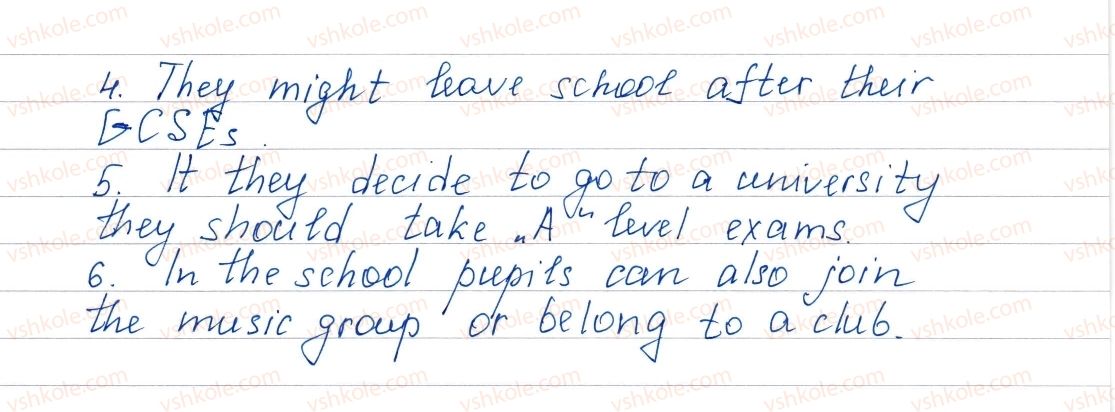 4. They might leave school after their
GCSEs.
5. It they decide to go to a university
they should take „A“ level exams.
6. In the school pupils can also join
the music group or belong to a club.